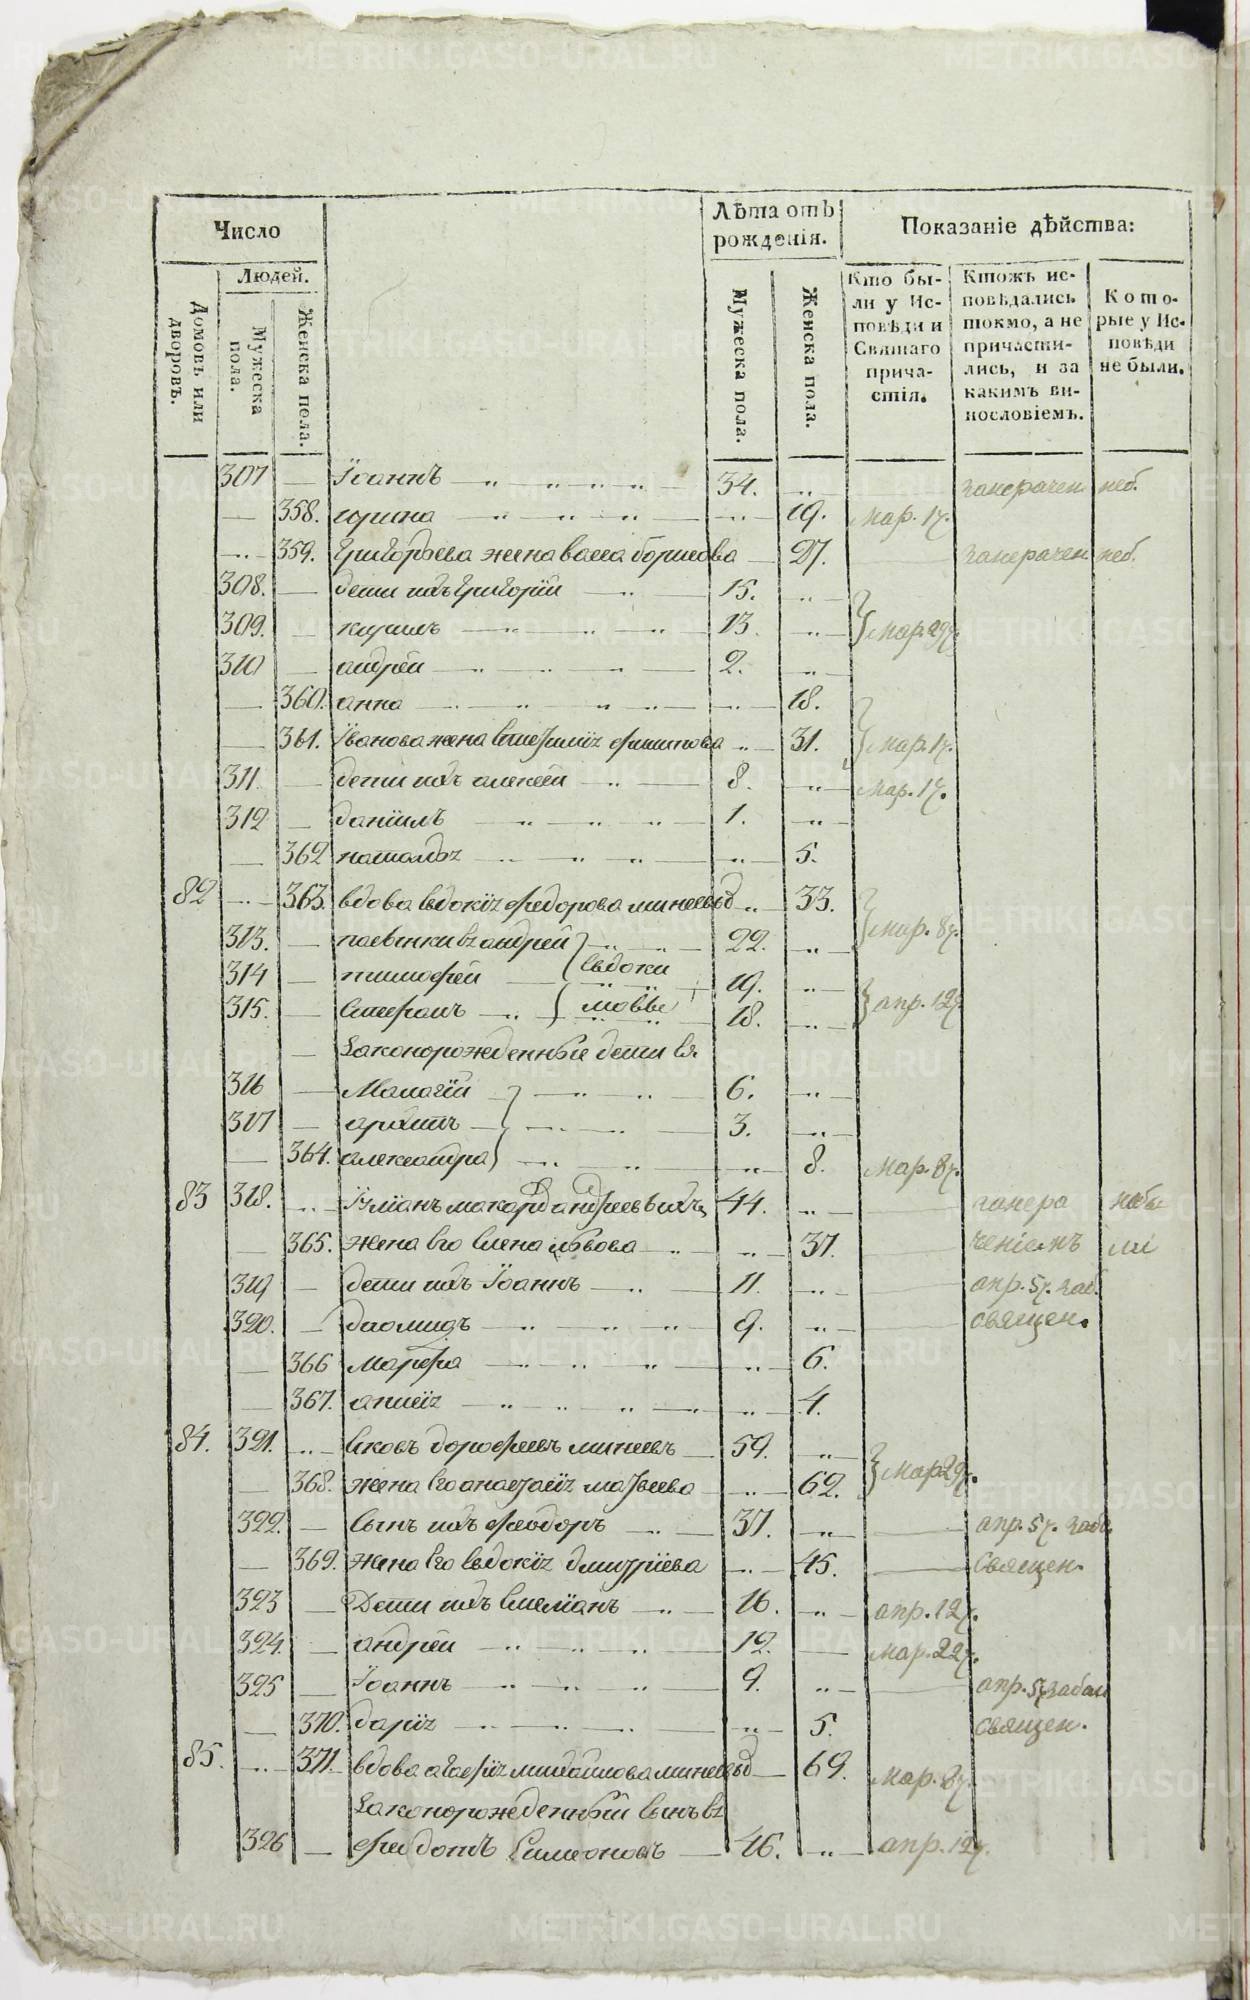 Число
Лѣта отъ рожденія.
Показаніе дѣйства:
Людей.
Домовъ или дворовъ.
Мужеска пола.
Женска пола.
Мужеска пола.
Женска пола.
Кто были у Исповѣди и Святаго причастія.
Ктожъ исповѣдались токмо, а не причастились, и за какимъ винословіемъ.
Которые у Исповѣди не были.
307 — Їоаннъ 34. неб.
— 358. ирина 19. мар. 17.
359. Григорьева жена васса борисова 27. неб.
308. — дети ихъ Григорїй 15.
309. — кирилъ 13. мар. 29.
310 — андрей 2.
— 360. анна 18.
— 361. Їванова жена филипова 31. мар. 17.
311. — дети ихъ алексей 8. мар. 17.
312 — данїилъ 1.
— 362 наталья 5.
82 363. вдова евдокїя федорова 33.
313. — пасынки ея андрей 22. мар. 8.
314 — тимофей евдоки 19.
315. — Стефанъ мовы 18. апр. 12
— Законорожденные дети ея
316 — 6.
317 — архипъ 3.
— 364. александра 8. мар. 8.
83 318. андреевъ 44. небы
— 365. жена его елена львова 37. ченіемъ ли
319 — дети ихъ Їоаннъ 11. апр. 5. заб.
320. — диомидъ 9. священ.
— 366 марфа 6.
— 367. анисїя 4.
84. 321. Їяковъ дорофеевъ минеевъ 59.
— 368. жена его анастасїя матвеева 62. мар 29.
322. — Сынъ ихъ феодоръ 37. апр. 5.
— 369. жена его евдокїя дмитрїева 45. священ.
323 — Дети ихъ 16. апр. 12.
324. — андрей 12. мар. 22.
325 — Їоаннъ 9. апр. 5
— 370. дарїя 5. священ.
85. 371. вдова агафїя михайлова 69. мар. 8.
Законорожденный сынъ ея
326 — федотъ Симеоновъ 46. апр. 12.
METRIKI.GASO-URAL.RU